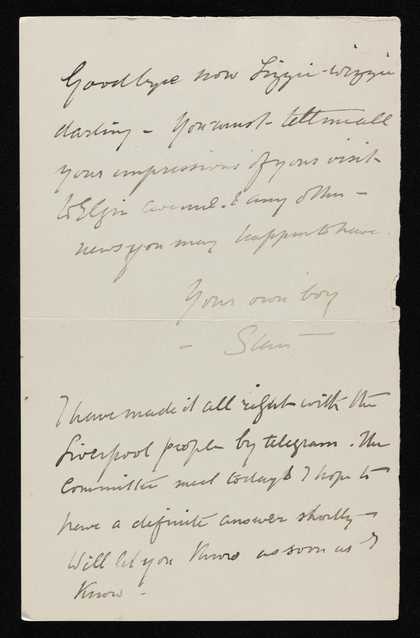 Goodbye now Lizzie-wizzie
darling - You must tell me all
your impressions of your visit
to Elgin Avenue & any other -
news you may happen to have.
Your own boy
-
I have made it all right with the
Liverpool people by telegram. The
Committee meet today & I hope to
have a definite answer shortly -
Will let you know as soon as I
know -